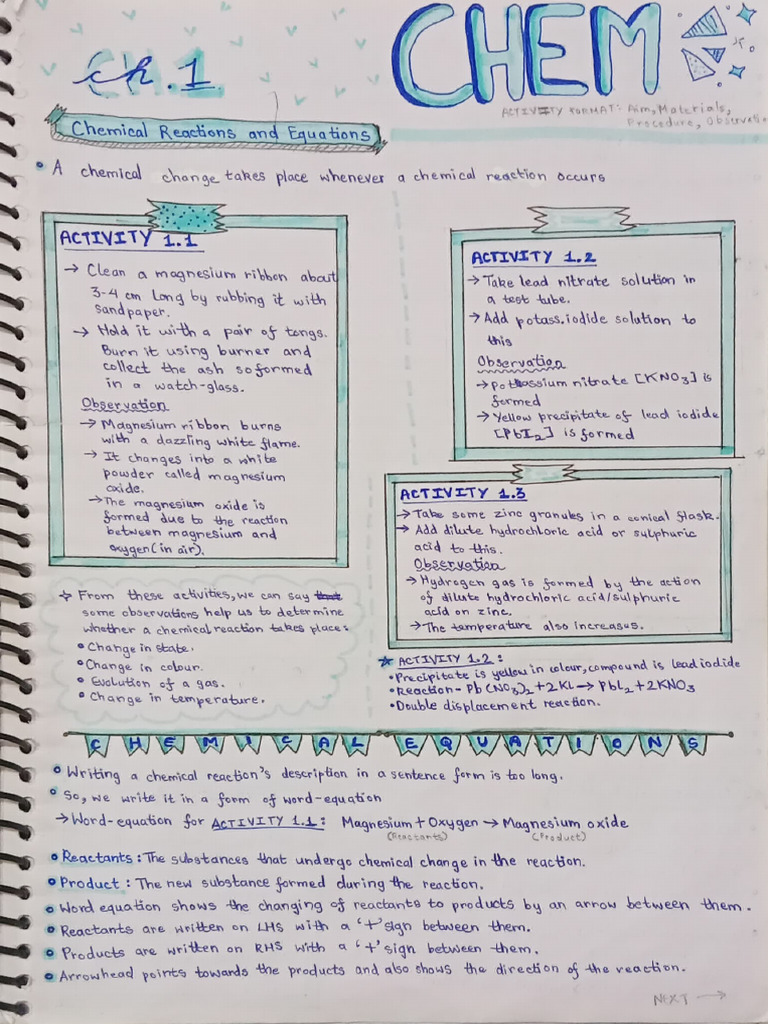 ch.1
CHEM
ACTIVITY FORMAT: Aim, Materials,
Procedure, Observation
Chemical Reactions and Equations
• A chemical change takes place whenever a chemical reaction occurs
ACTIVITY 1.1
→ Clean a magnesium ribbon about
3-4 cm long by rubbing it with
sandpaper.
→ Hold it with a pair of tongs.
Burn it using burner and
collect the ash so formed
in a watch-glass.
Observation
→ Magnesium ribbon burns
with a dazzling white flame.
→ It changes into a white
powder called magnesium
oxide.
→ The magnesium oxide is
formed due to the reaction
between magnesium and
oxygen (in air).
ACTIVITY 1.2
→ Take lead nitrate solution in
a test tube.
→ Add potass.iodide solution to
this
Observation
→ Pottassium nitrate [KNO3] is
formed
→ Yellow precipitate of lead iodide
[PbI2] is formed
ACTIVITY 1.3
→ Take some zinc granules in a conical flask.
→ Add dilute hydrochloric acid or sulphuric
acid to this.
Observation
→ Hydrogen gas is formed by the action
of dilute hydrochloric acid/sulphuric
acid on zinc.
→ The temperature also increases.
From these activities, we can say that
some observations help us to determine
whether a chemical reaction takes place:
• Change in state.
• Change in colour.
• Evolution of a gas.
• Change in temperature.
★ ACTIVITY 1.2:
• Precipitate is yellow in colour, compound is lead iodide
• Reaction - Pb(NO3)2 + 2KI → PbI2 + 2KNO3
• Double displacement reaction.
CHEMICAL EQUATIONS
• Writing a chemical reaction's description in a sentence form is too long.
• So, we write it in a form of word-equation
→ Word-equation for ACTIVITY 1.1: Magnesium + Oxygen → Magnesium oxide
(Reactants) (Product)
• Reactants: The substances that undergo chemical change in the reaction.
• Product: The new substance formed during the reaction.
• Word equation shows the changing of reactants to products by an arrow between them.
• Reactants are written on LHS with a '+' sign between them.
• Products are written on RHS with a '+' sign between them.
• Arrowhead points towards the products and also shows the direction of the reaction.
NEXT →